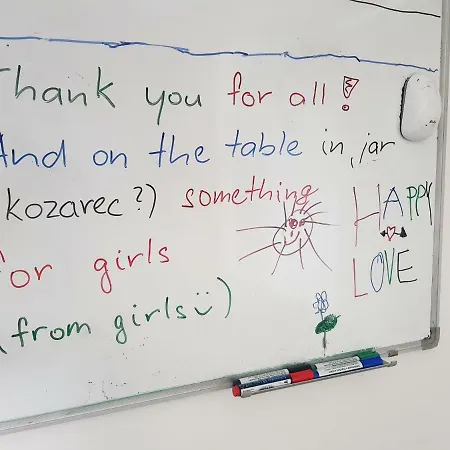 Thank you for all!
And on the table in jar
kozarec?) something
for girls
(from girls :)
HAPPY
LOVE